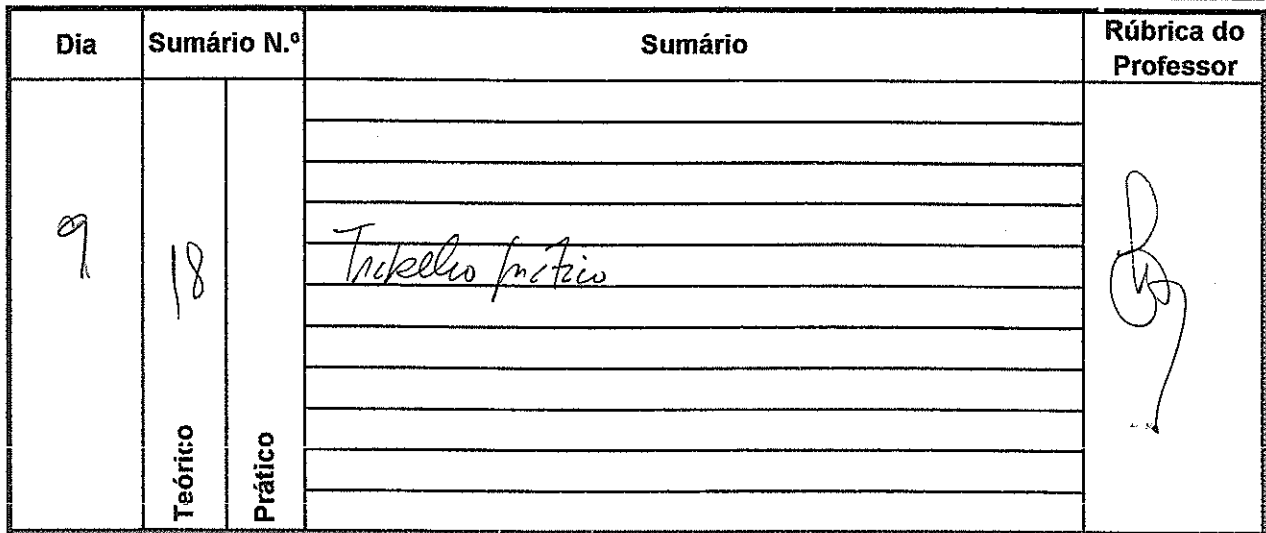 Dia Sumário N.º Sumário Rúbrica do Professor
9 18 Trabalho prático
Teórico Prático